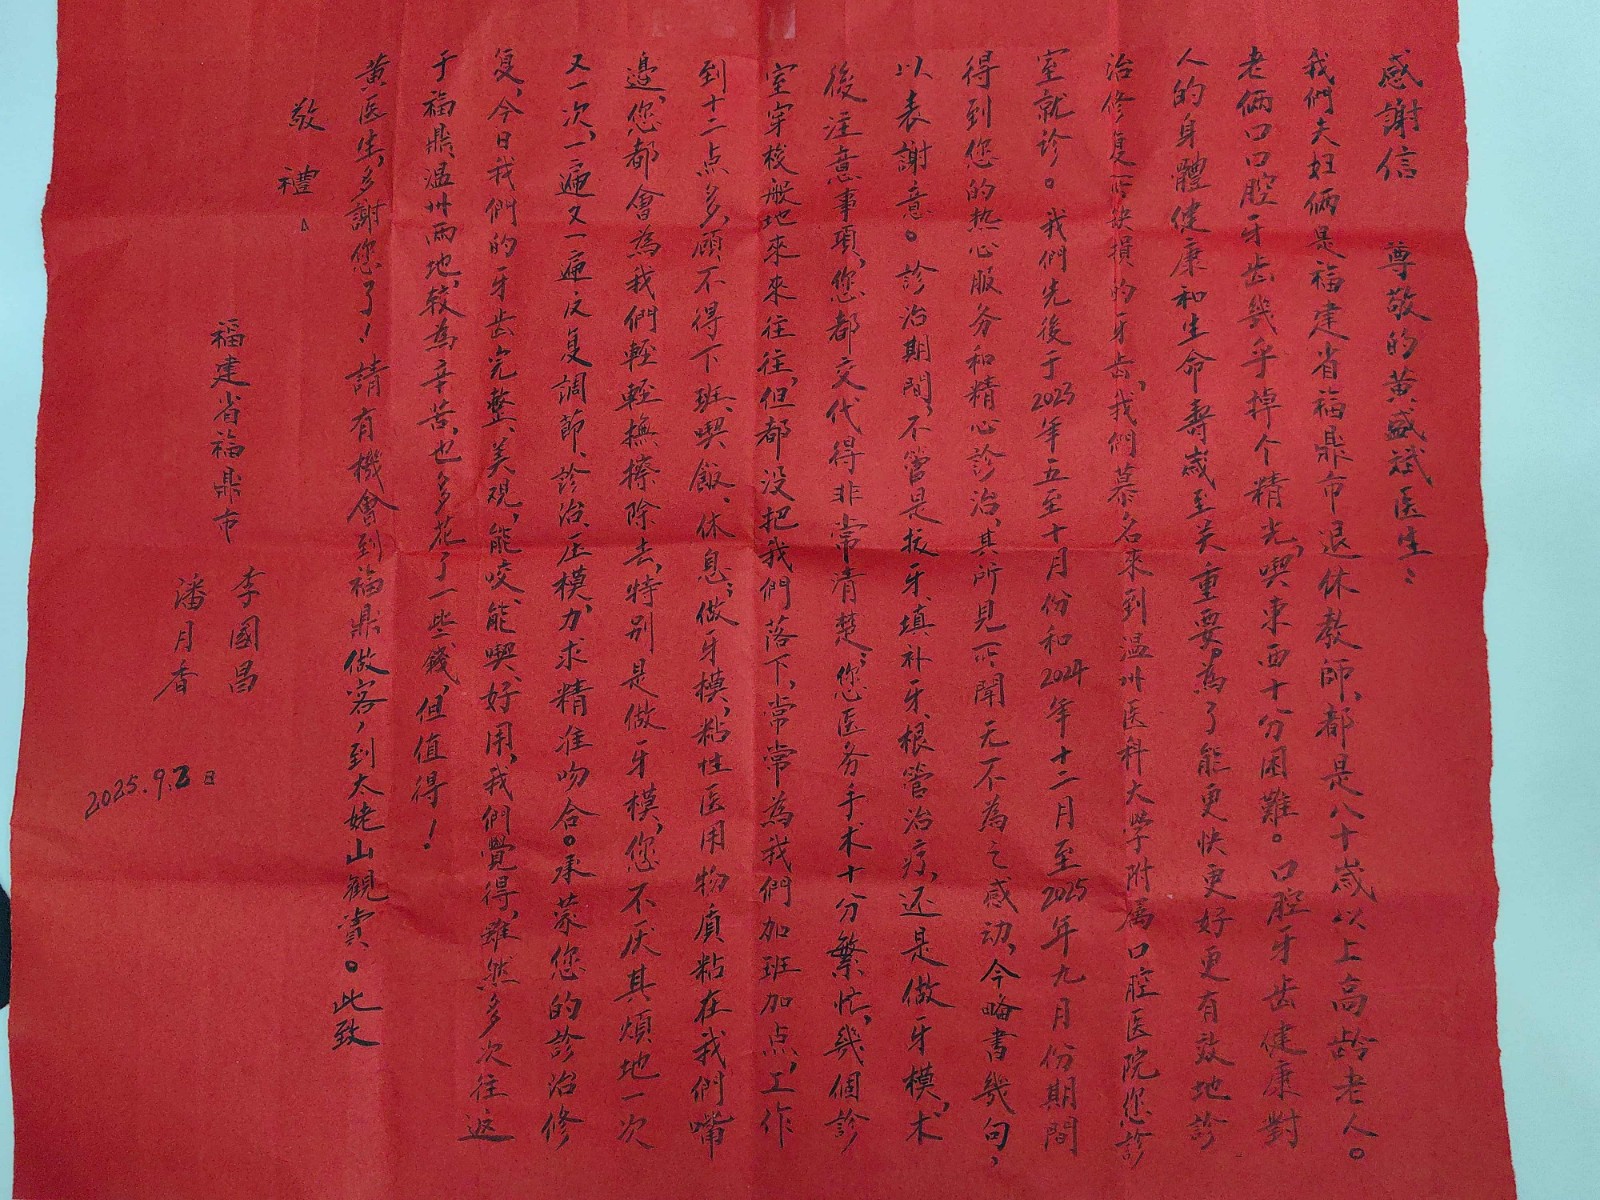 感謝信　尊敬的黄盛斌医生：
我們夫妇俩是福建省福鼎市退休教師，都是八十歲以上高龄老人。
老俩口口腔牙齿幾乎掉个精光，喫東西十分困難。口腔牙齿健康對
人的身體健康和生命壽歲至关重要。為了能更快更好更有效地診
治修复所缺損的牙齿，我們慕名來到温州医科大学附属口腔医院您診
室就诊。我們先後于2023年五至十月份和2024年十二月至2025年九月份期間
得到您的热心服务和精心診治，其所見所聞无不為之感动，今略書幾句，
以表謝意。診治期間，不管是拔牙、填补牙、根管治疗，还是做牙模，术
後注意事項，您都交代得非常清楚；您医务手术十分繁忙，幾個診
室穿梭般地來來往往，但都没把我們落下，常常為我們加班加点，工作
到十二点多，顾不得下班、喫飯、休息；做牙模，粘性医用物质粘在我們嘴
邊，您都會為我們輕輕撫擦除去，特别是做牙模，您不厌其煩地一次
又一次，一遍又一遍反复調節、診治、压模，力求精准吻合。承蒙您的診治修
复，今日我們的牙齿完整、美观，能咬、能喫、好用，我們覺得，雖然多次往返
于福鼎、温州两地，较為辛苦，也多花了一些錢，但值得！
黄医生，多謝您了！請有機會到福鼎做客，到太姥山觀賞。此致
敬禮
福建省福鼎市
李國昌
潘月香
2025.9.2日